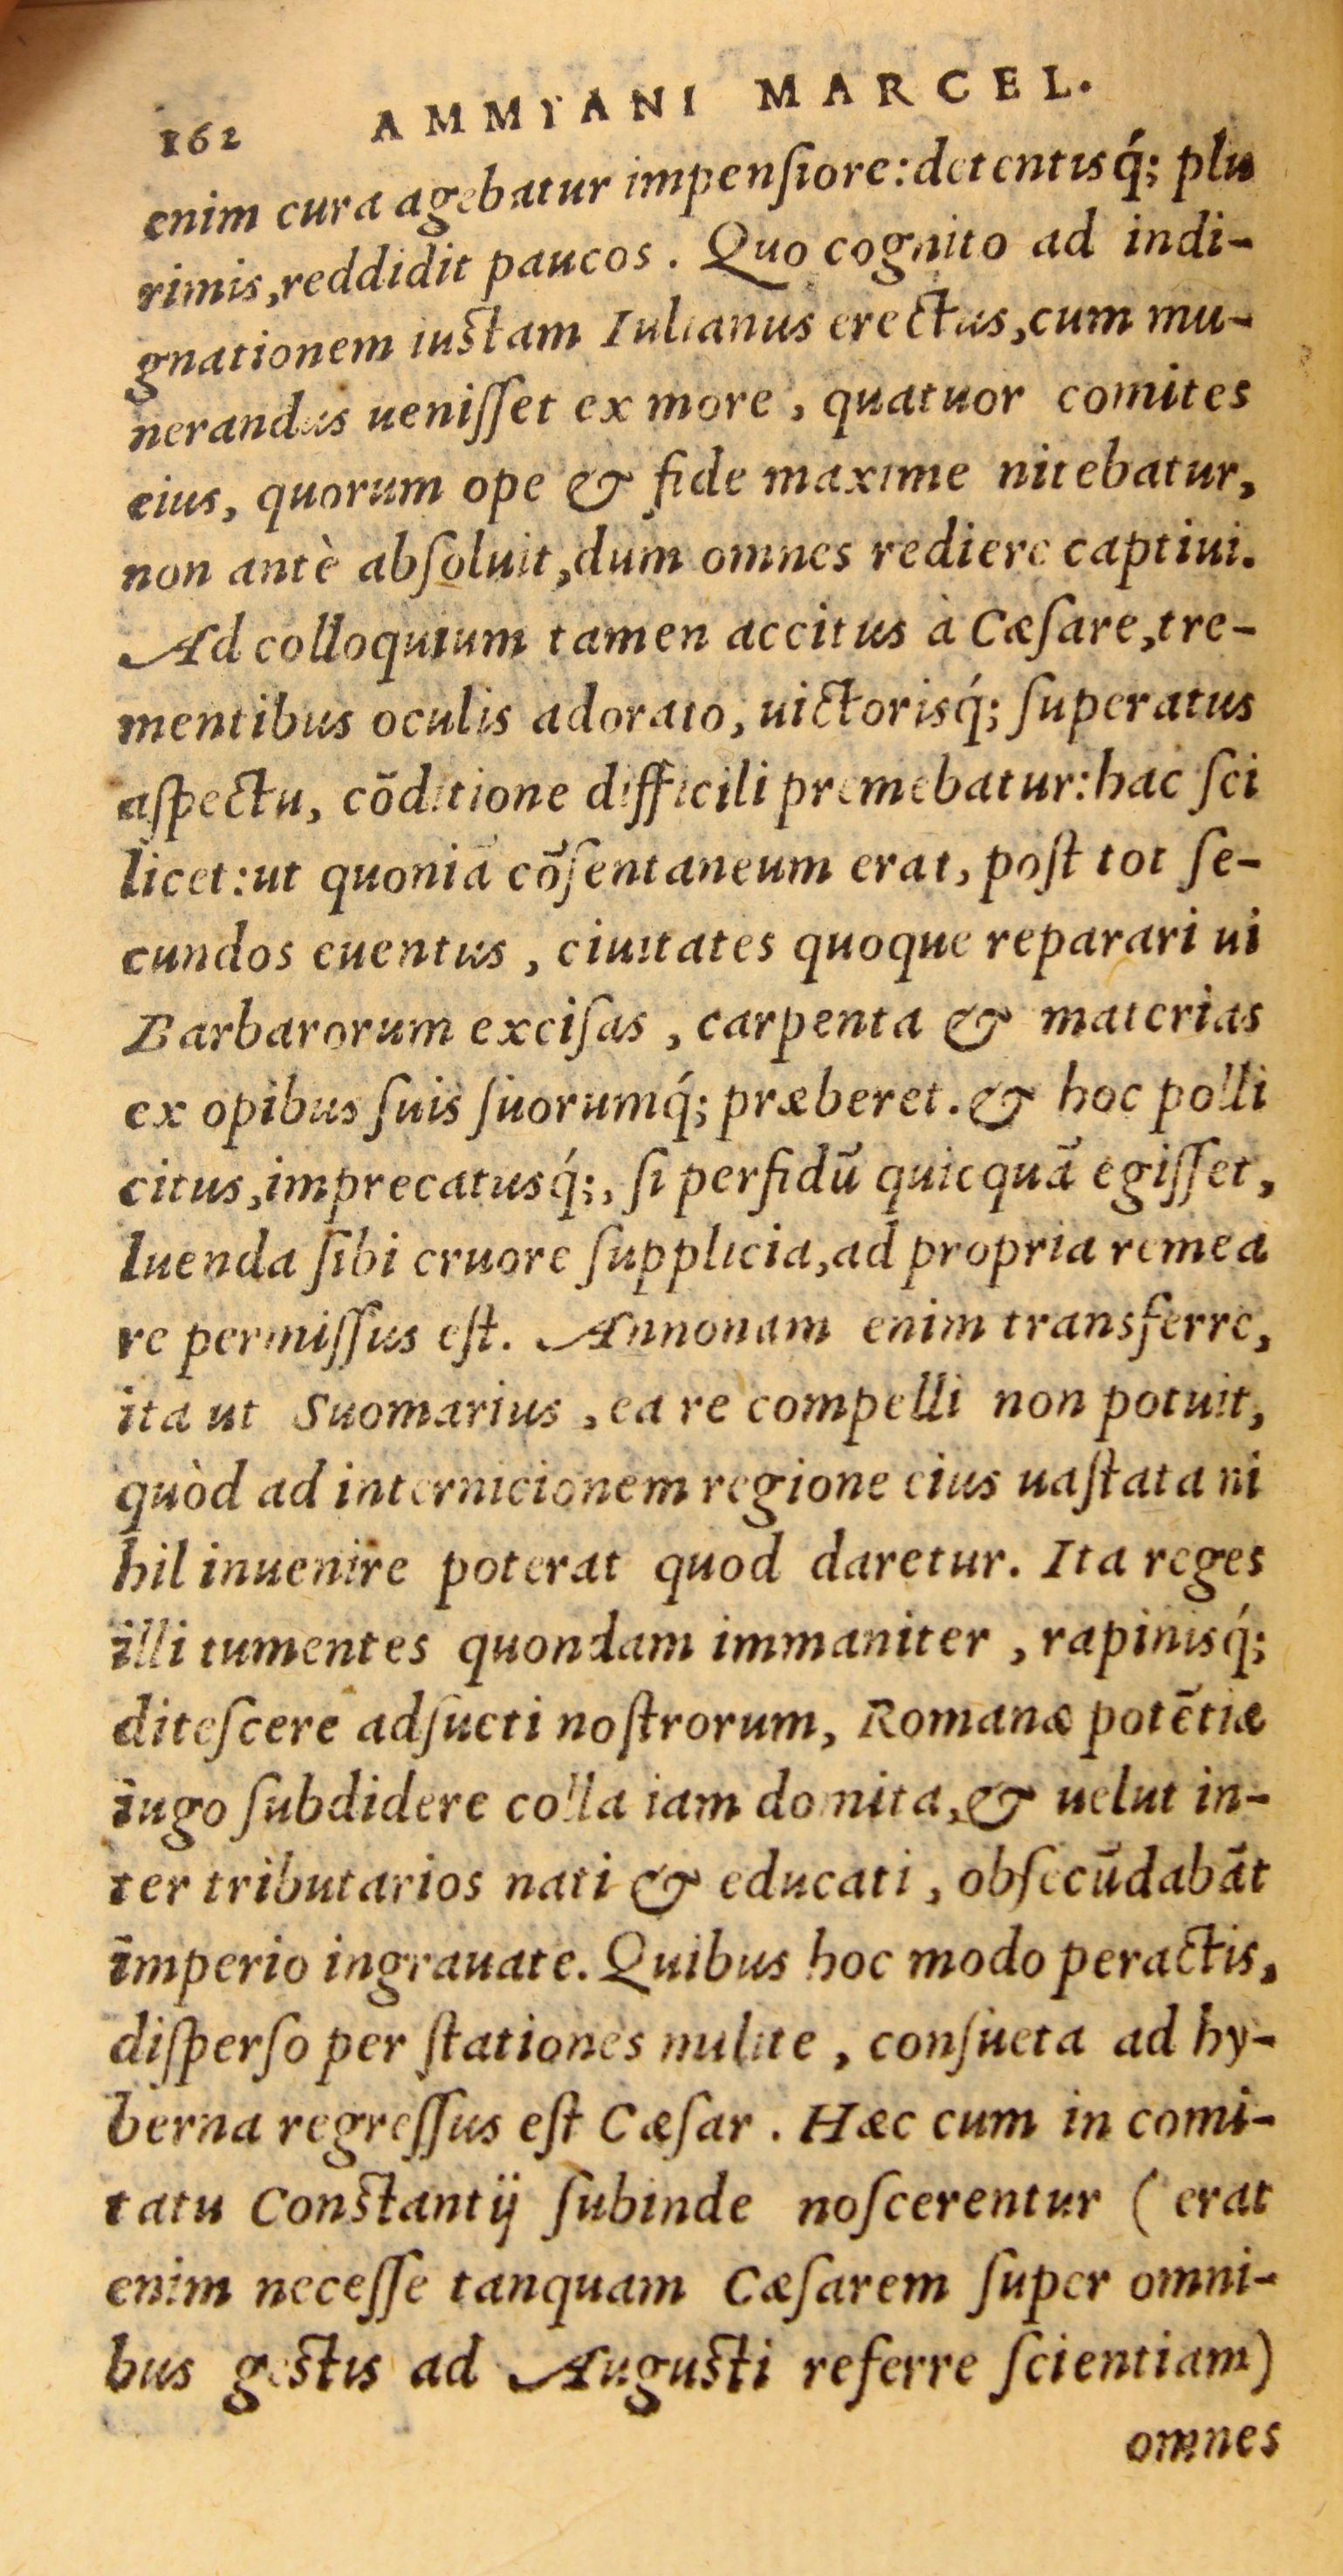 162 AMMIANI MARCEL.
enim cura agebatur impenſiore: detentisq́; plu
rimis, reddidit paucos. Quo cognito ad indi-
gnationem iuſtam Iulianus erectus, cum mu-
nerandus ueniſſet ex more, quatuor comites
eius, quorum ope & fide maxime nitebatur,
non antè abſoluit, dum omnes rediere captiui.
Ad colloquium tamen accitus à Cæſare, tre-
mentibus oculis adorato, uictorisq́; ſuperatus
aſpectu, cōditione difficili premebatur: hac ſci
licet: ut quoniā cōſentaneum erat, poſt tot ſe-
cundos euentus, ciuitates quoque reparari ui
Barbarorum exciſas, carpenta & materias
ex opibus ſuis ſuorumq́; præberet. & hoc polli
citus, imprecatusq́;, ſi perfidū quicquā egiſſet,
luenda ſibi cruore ſupplicia, ad propria remea
re permiſſus eſt. Annonam enim transferre,
ita ut Suomarius, ea re compelli non potuit,
quòd ad internicionem regione eius uaſtata ni
hil inuenire poterat quod daretur. Ita reges
illi tumentes quondam immaniter, rapinisq́;
diteſcere adſueti noſtrorum, Romanæ potētiæ
iugo ſubdidere colla iam domita, & uelut in-
ter tributarios nati & educati, obſecūdabāt
imperio ingrauate. Quibus hoc modo peractis,
diſperſo per ſtationes milite, conſueta ad hy-
berna regreſſus eſt Cæſar. Hæc cum in comi-
tatu Conſtantij ſubinde noſcerentur (erat
enim neceſſe tanquam Cæſarem ſuper omni-
bus geſtis ad Auguſti referre ſcientiam)
omnes